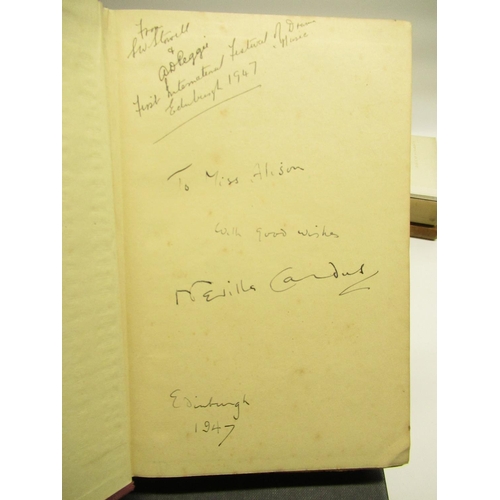 From
&
First International Festival of Drama
Music
Edinburgh 1947
To Miss Alison
with good wishes
Neville Cardus
Edinburgh
1947